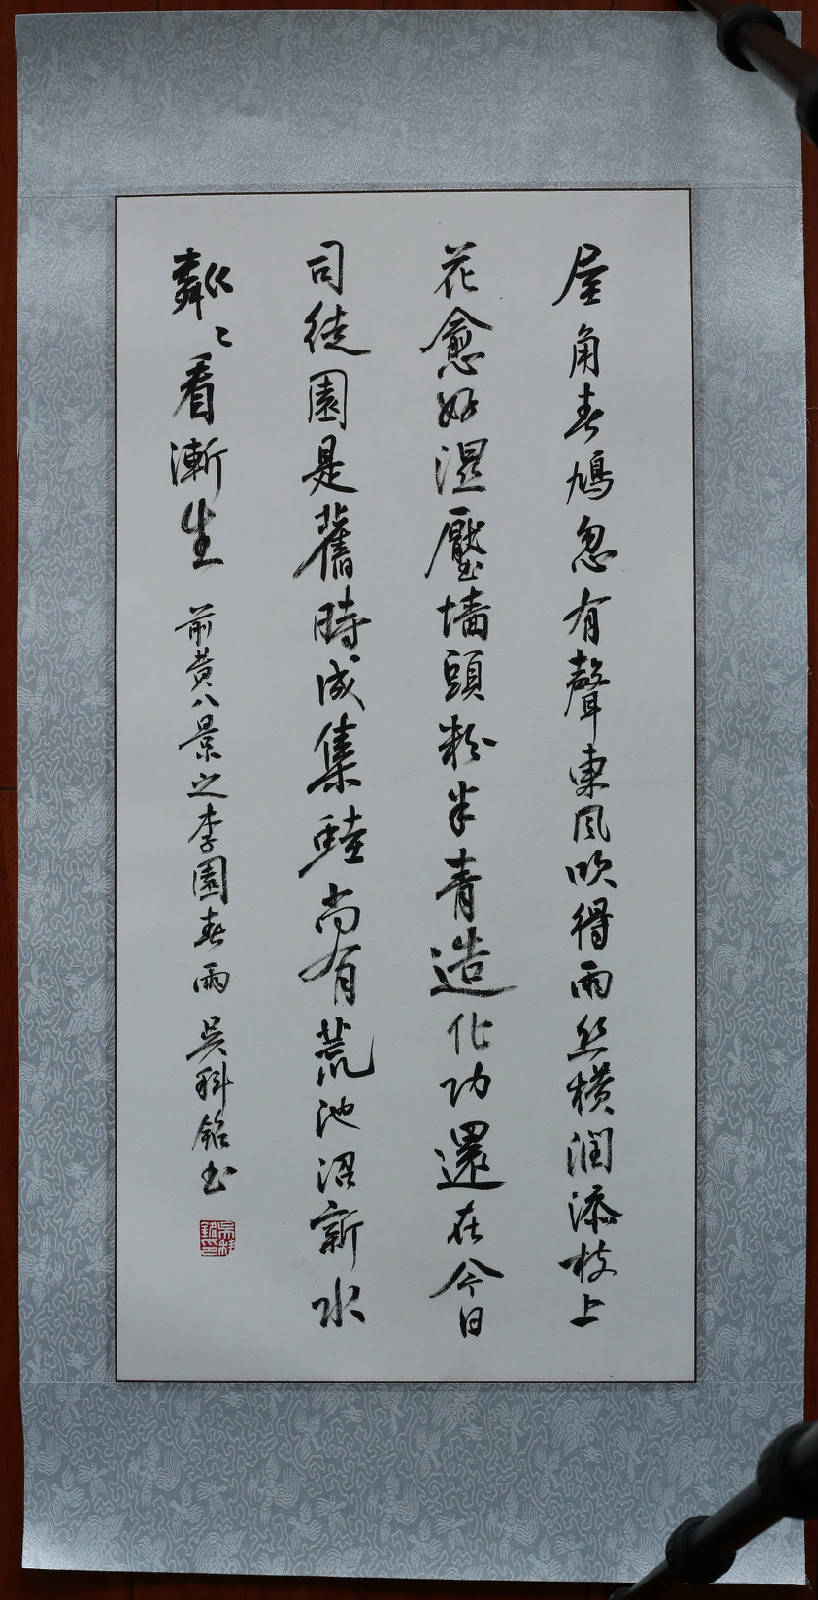 屋角春鳩忽有聲東風吹得雨丝横潤添枝上
花愈好濕壓墙頭粉半青造化功還在今日
司徒園是舊時成集蛙尚有荒池沼新水
粼〻看漸生 前黄八景之李園春雨 吴科銘书